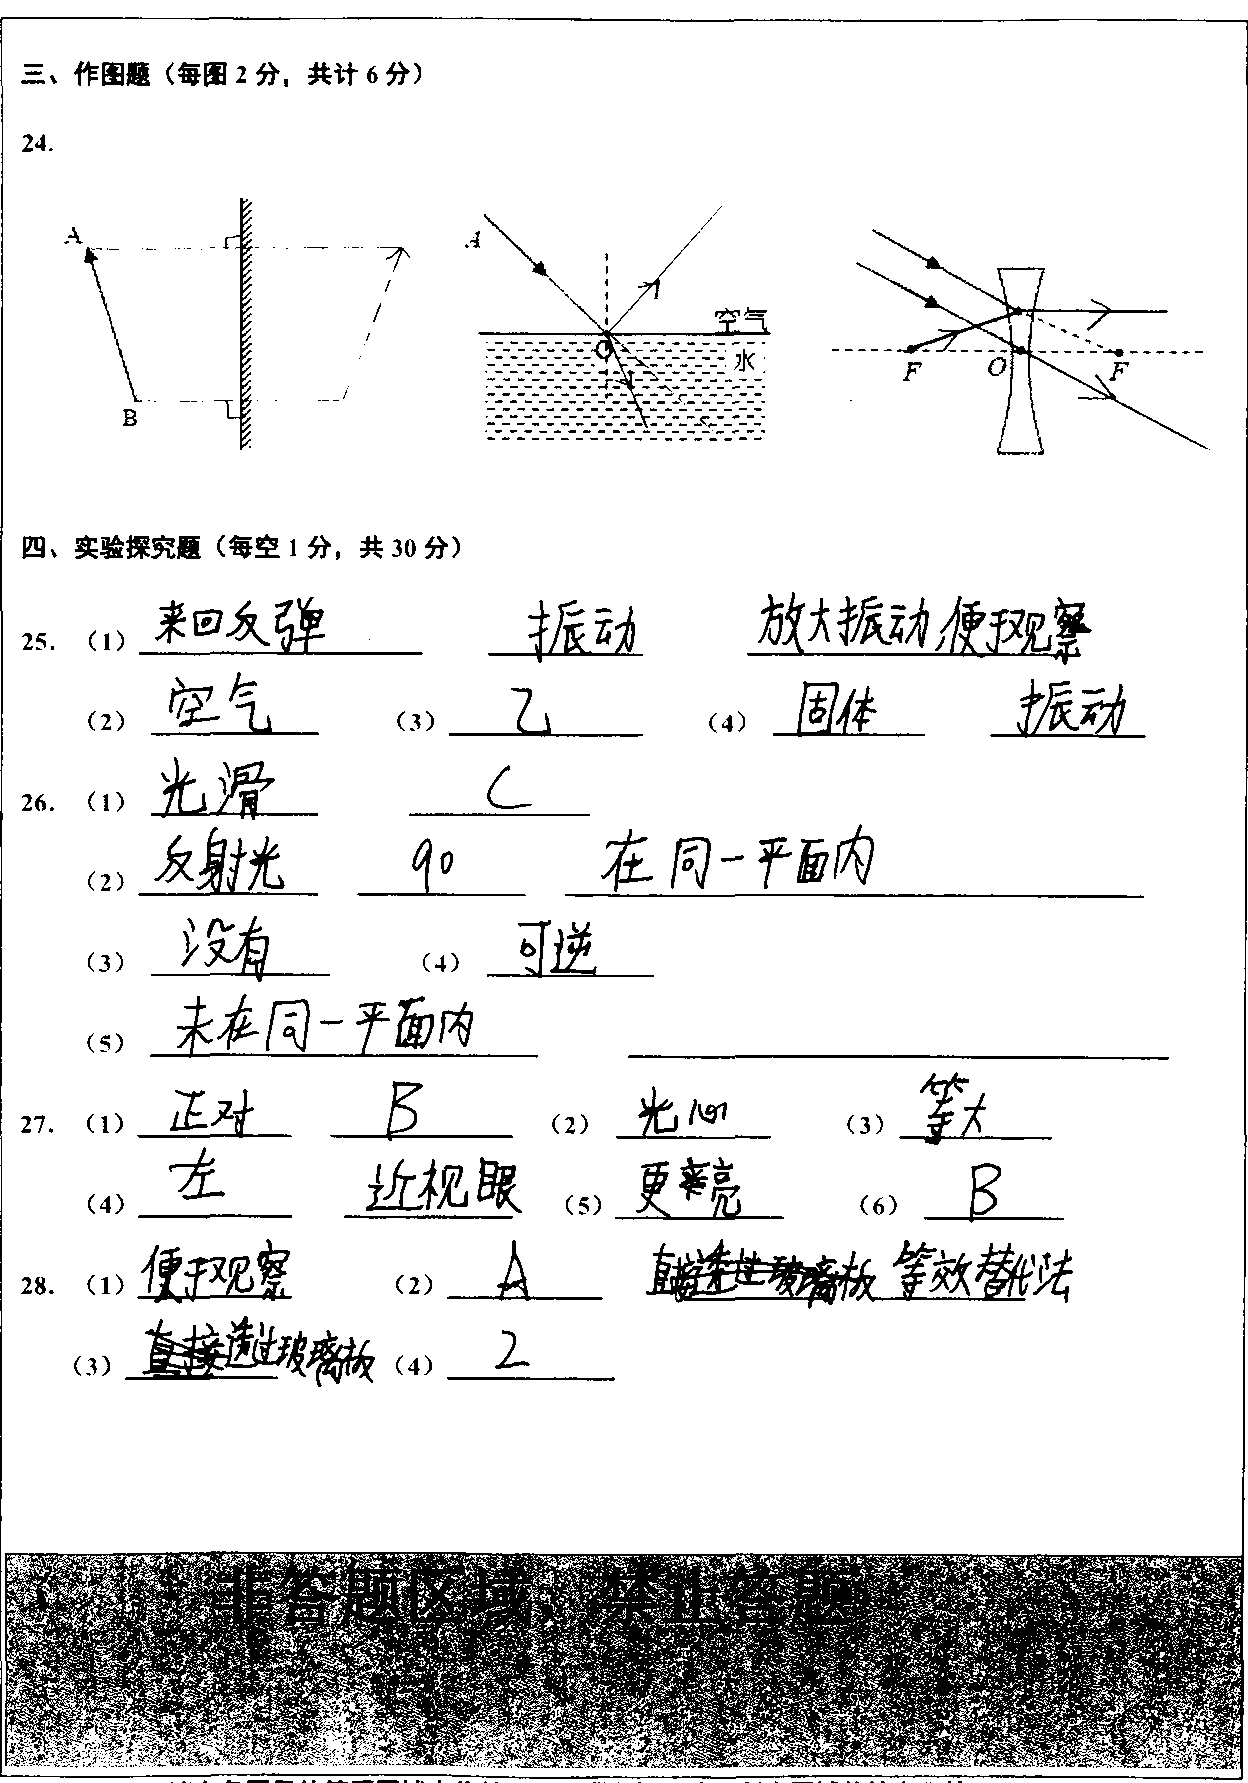 三、作图题（每图 2 分，共计 6 分）
24.
A
B
A
O
空气
水
F
O
F
四、实验探究题（每空 1 分，共 30 分）
25. （1） 来回反弹 振动 放大振动,便于观察
（2） 空气 （3） 乙 （4） 固体 振动
26. （1） 光滑 C
（2） 反射光 90 在同一平面内
（3） 没有 （4） 可逆
（5） 未在同一平面内
27. （1） 正对 B （2） 光心 （3） 等大
（4） 左 近视眼 （5） 更亮 （6） B
28. （1） 便于观察 （2） A 等效替代法
（3） 透过玻璃板 （4） 2
非答题区域，禁止答题